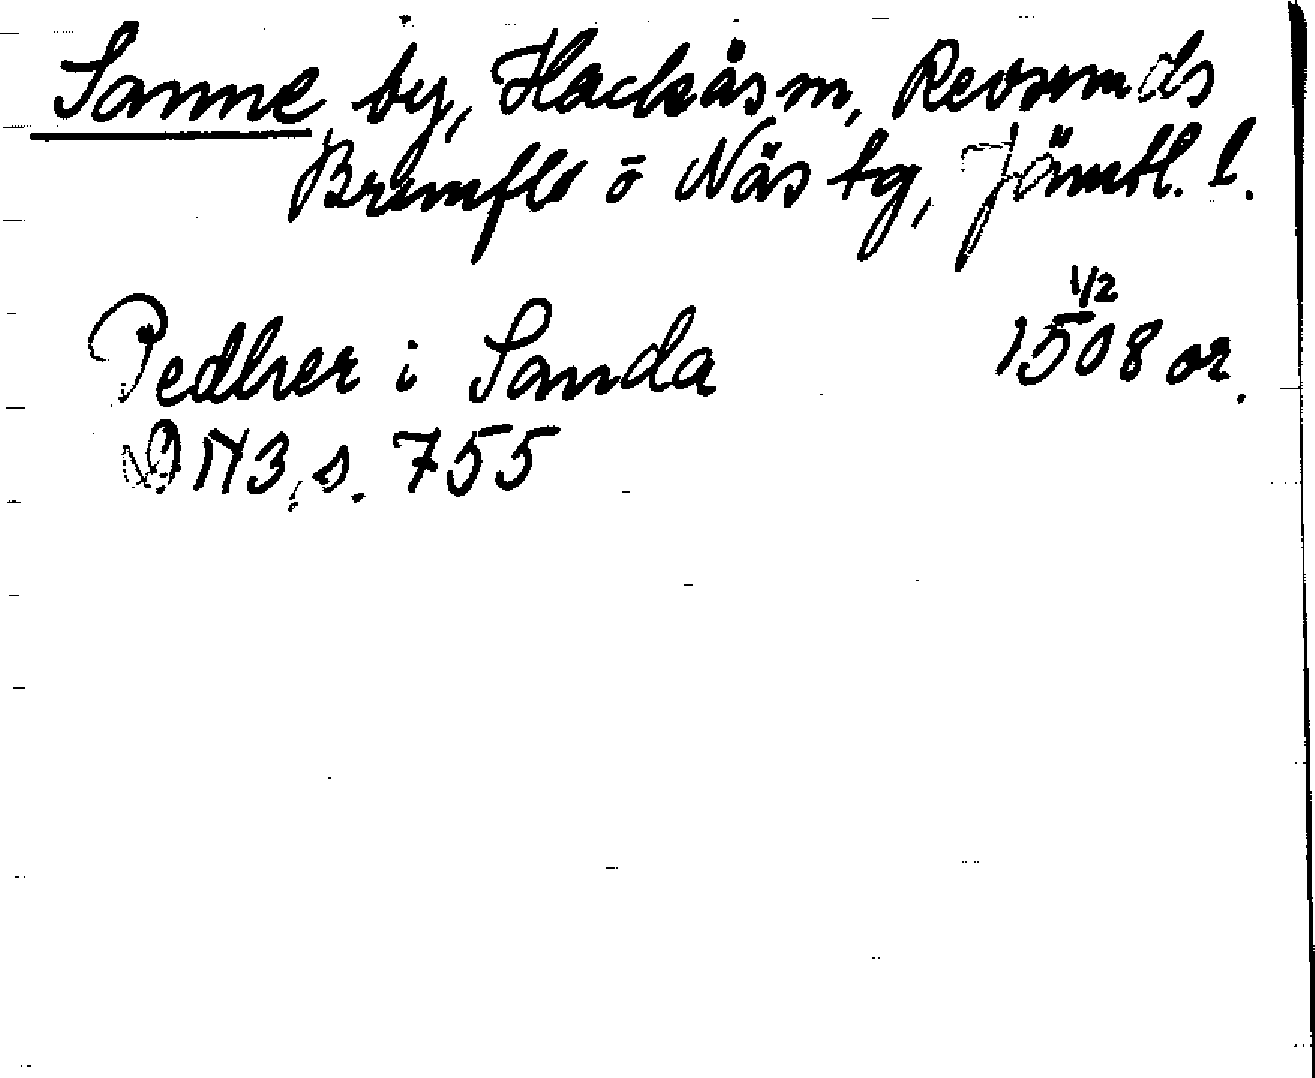 Sanne by, Hackås sn, Revsunds
Brunflo o Näs tg, Jämtl. l.
1/2
Pedher i Sanda 1508 or.
DN 3, s. 755